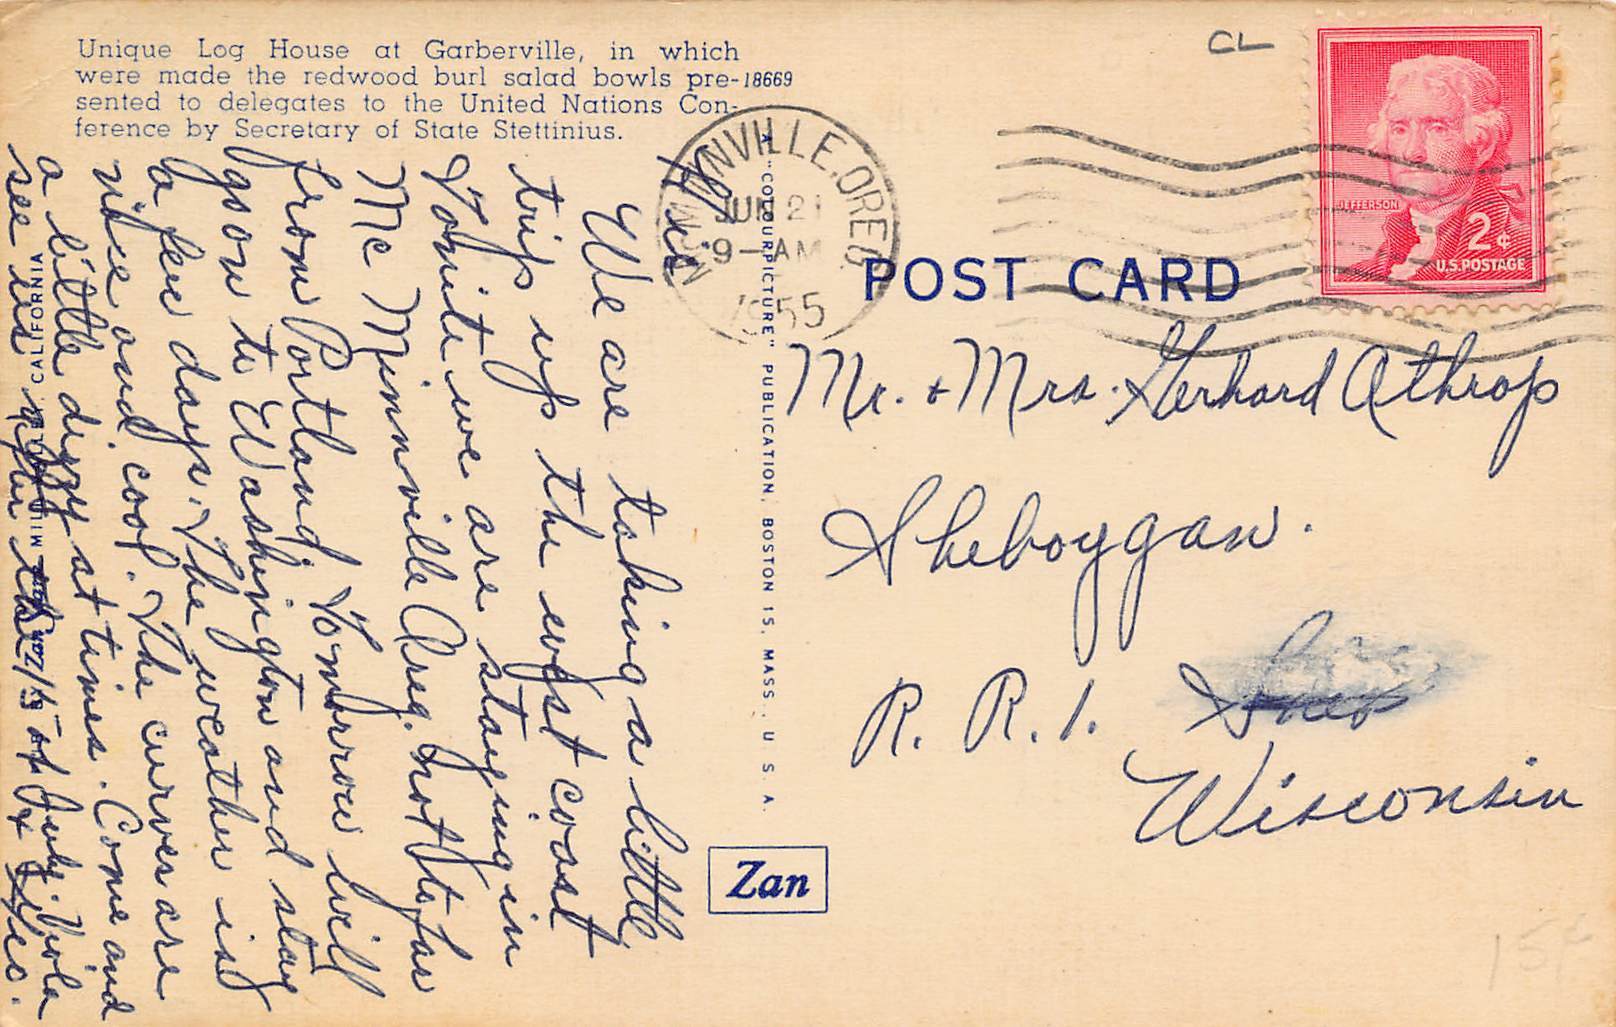 Unique Log House at Garberville, in which
were made the redwood burl salad bowls pre-18669
sented to delegates to the United Nations Con-
ference by Secretary of State Stettinius.
CL
McMINNVILLE, OREG.
JUN 21
9-AM
1955
JEFFERSON
2¢
U.S. POSTAGE
POST CARD
A "COLOURPICTURE" PUBLICATION, BOSTON 15, MASS., U.S.A.
Zan
CALIFORNIA
Hi
We are taking a little
trip up the west coast
Tonite we are staying in
Mc Minnville Oreg. not to far
from Portland. Tomorrow will
go on to Washington and stay
a few days. The weather is
nice and cool. The curves are
a little dizzy at times. Come and
see us after the 15 of July. Viola
Mr. + Mrs. Gerhard Athrop
Sheboygan.
R. R. 1.
Wisconsin
15¢